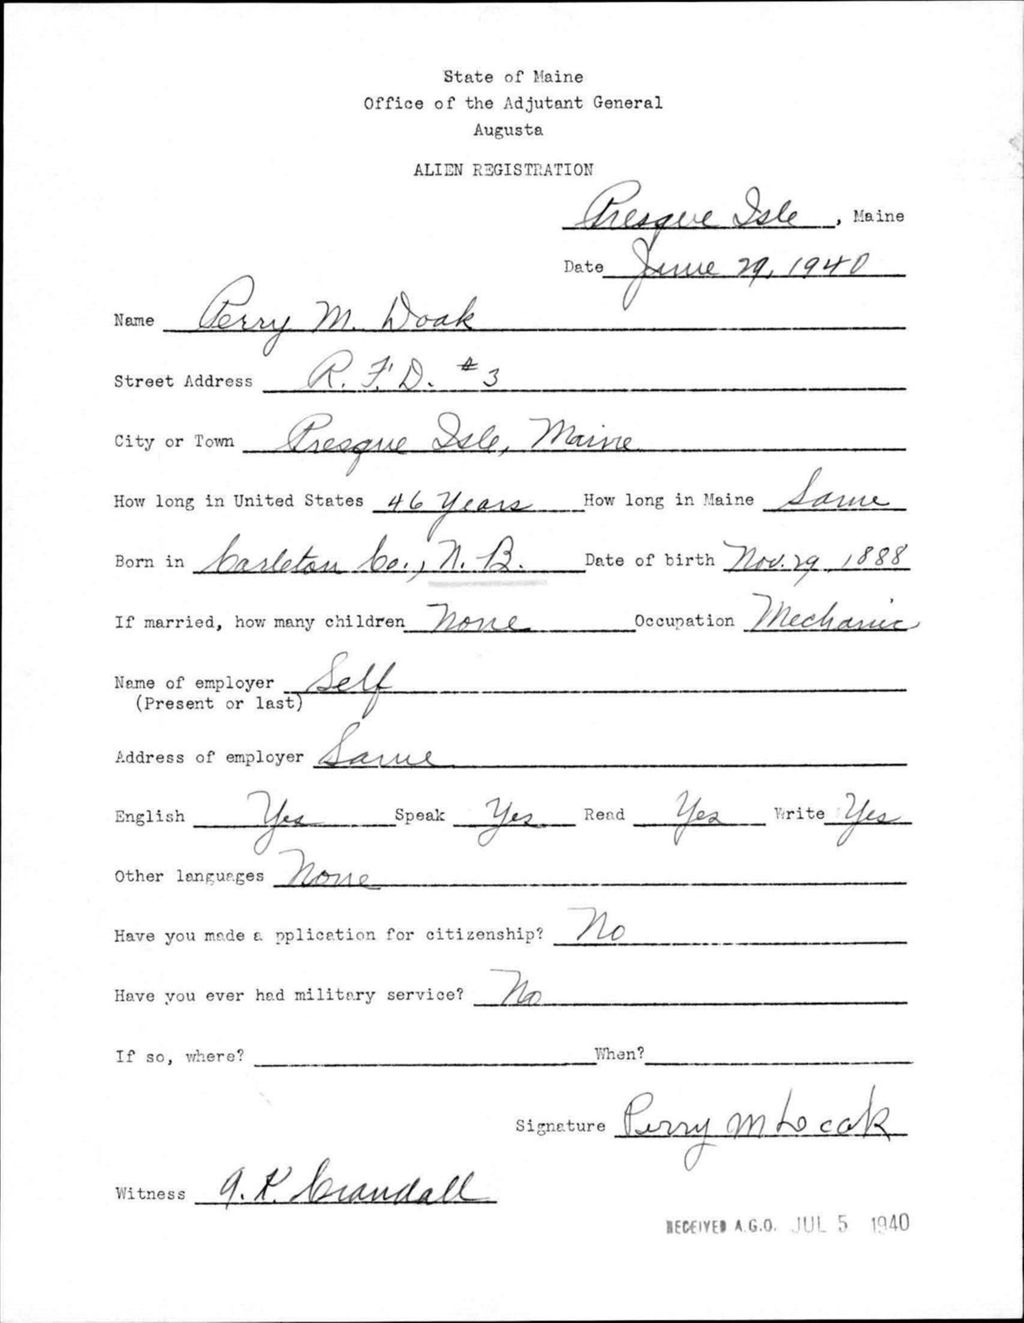 State of Maine
Office of the Adjutant General
Augusta
ALIEN REGISTRATION
Presque Isle, Maine
Date June 29, 1940
Name Perry M. Doak
Street Address R. F. D. #3
City or Town Presque Isle, Maine
How long in United States 46 Years How long in Maine Same
Born in Carleton Co., N. B. Date of birth Nov. 29, 1888
If married, how many children None Occupation Mechanic
Name of employer Self
(Present or last)
Address of employer Same
English Yes Speak Yes Read Yes Write Yes
Other languages None
Have you made a pplication for citizenship? No
Have you ever had military service? No
If so, where? When?
Signature Perry M Doak
Witness Crandall
RECEIVED A.G.O. JUL 5 1940